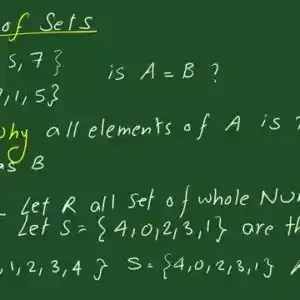 of Sets
5, 7 }
is A = B ?
, 1, 5 }
why all elements of A is ?
as B
Let R all set of whole Nu
Let S = { 4, 0, 2, 3, 1 } are th
, 1, 2, 3, 4 } S = { 4, 0, 2, 3, 1 }